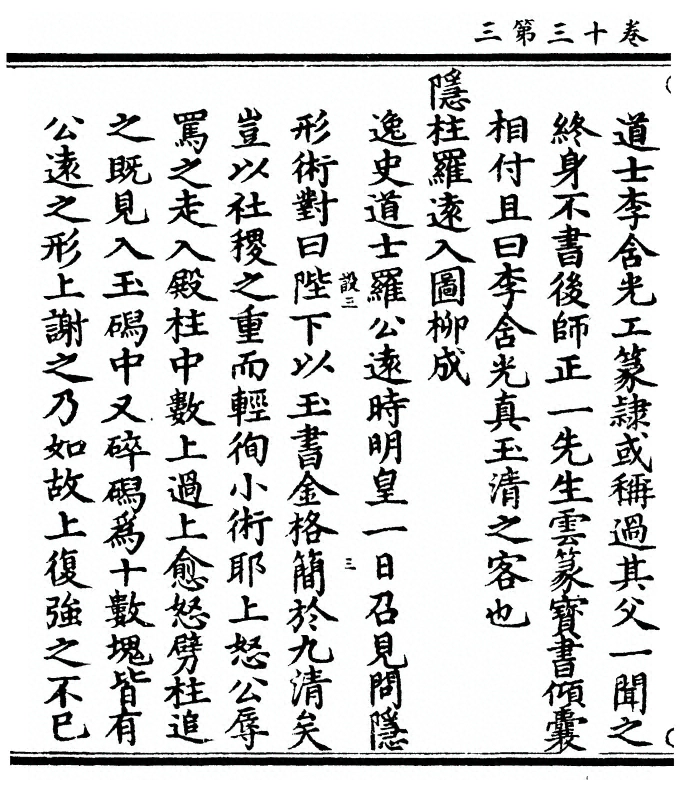 卷十三第三
道士李含光工篆隸或稱過其父一聞之
終身不書後師正一先生雲篆寶書傾囊
相付且曰李含光真玉清之客也
隱柱羅遠入圖柳成
逸史道士羅公遠時明皇一日召見問隱
形術對曰陛下以玉書金格簡於九清矣
設三
三
豈以社稷之重而輕徇小術耶上怒公辱
罵之走入殿柱中數上過上愈怒劈柱追
之既見入玉磶中又碎磶爲十數塊皆有
公遠之形上謝之乃如故上復強之不已